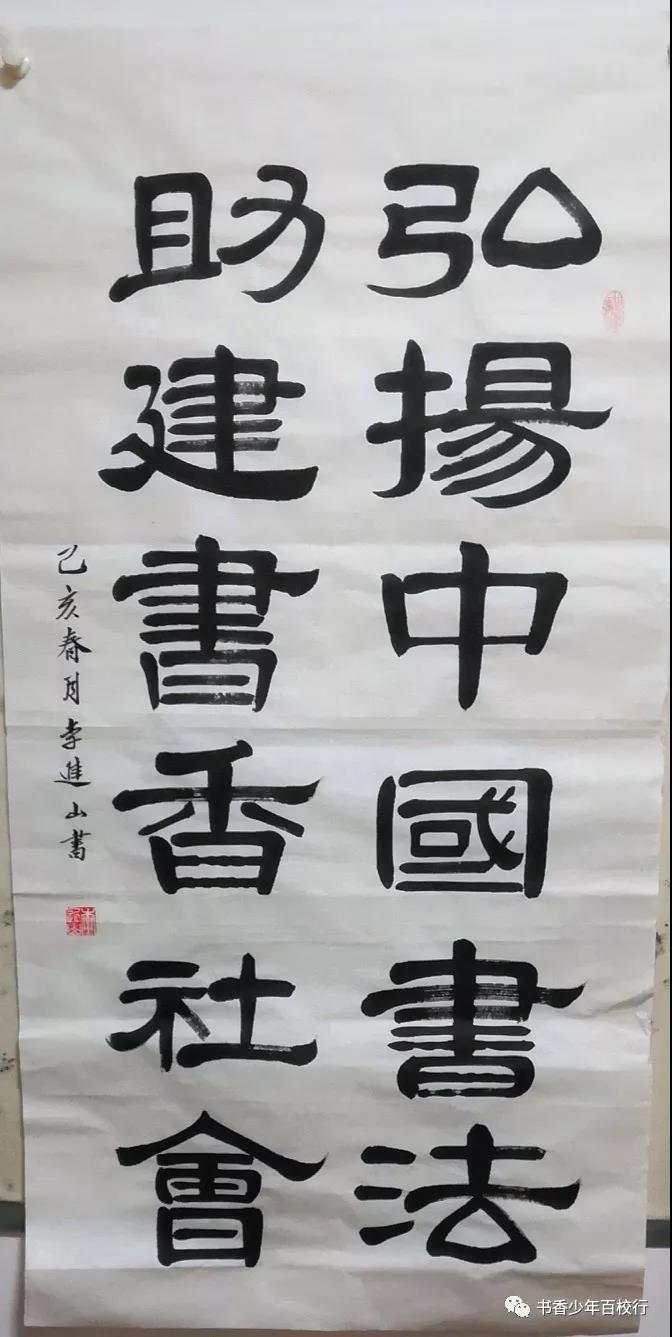 弘揚中國書法
助建書香社會
己亥春月李進山書
书香少年百校行